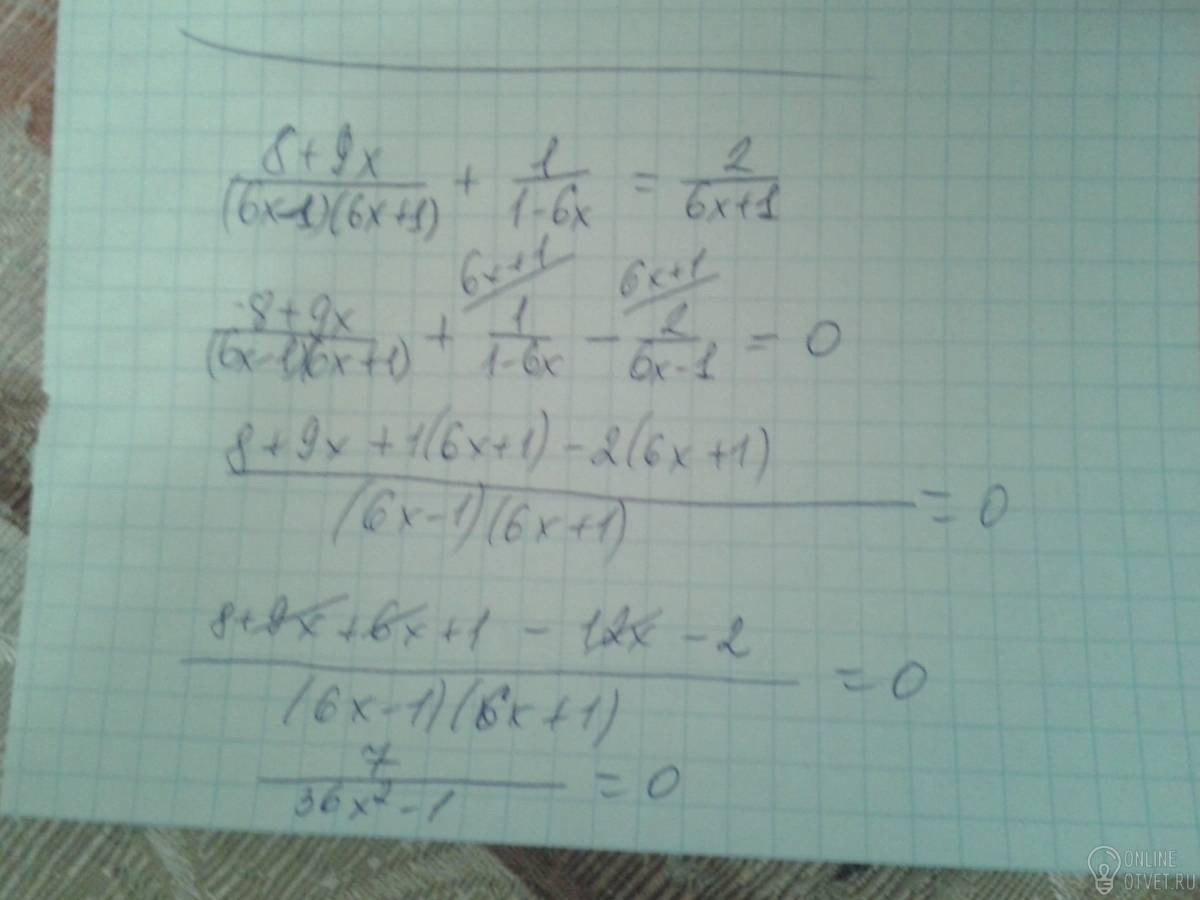 8+9x/(6x-1)(6x+1) + 1/1-6x = 2/6x+1
6x+1/ 6x+1/
-8+9x/(6x-1)(6x+1) + 1/1-6x - 2/6x-1 = 0
8+9x+1(6x+1)-2(6x+1)/(6x-1)(6x+1) = 0
8+9x+6x+1-12x-2/(6x-1)(6x+1) = 0
7/36x²-1 = 0
ONLINE
OTVET.RU